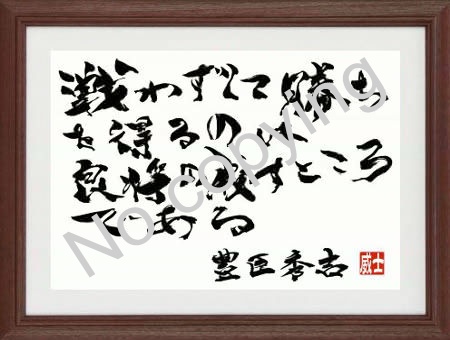 戦わずして勝ち
を得るのは、
良将の成すところ
である
豊臣秀吉 威士
No copying